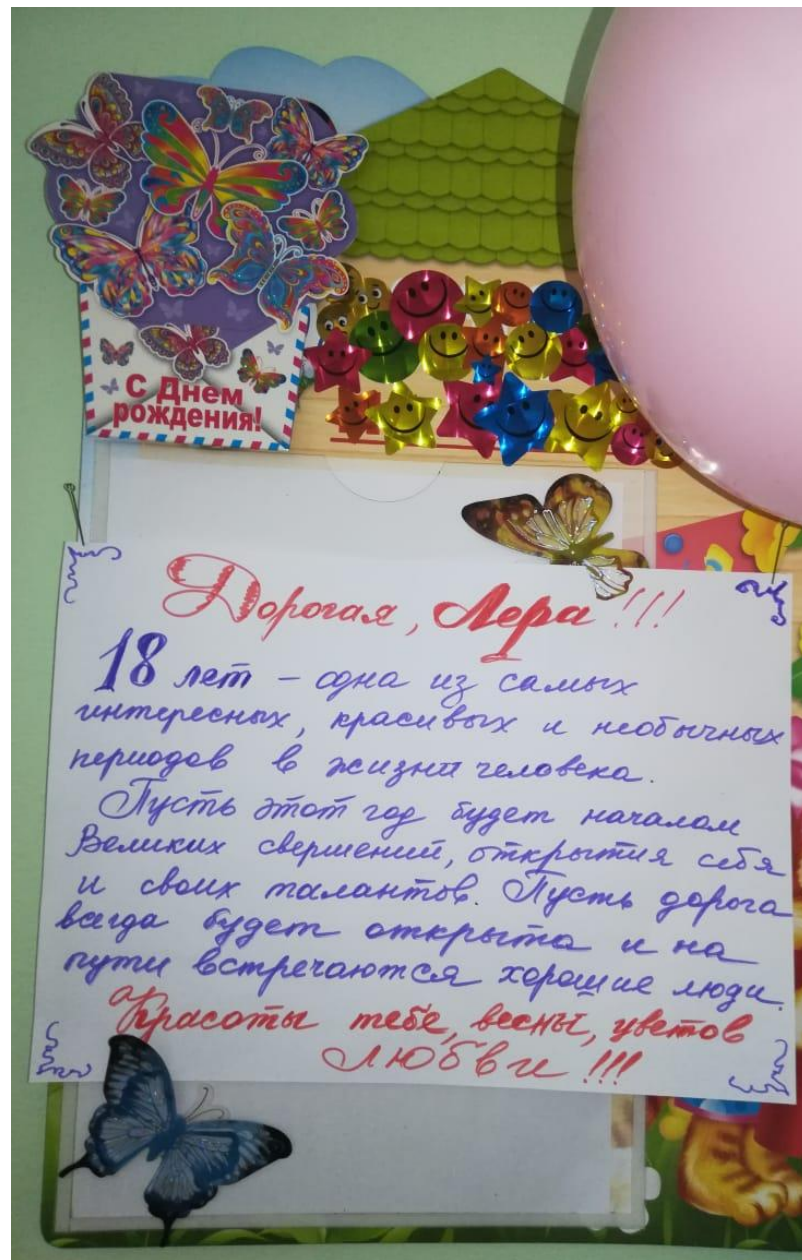 С Днем
рождения!
Дорогая, Лера!!!
18 лет - одна из самых
интересных, красивых и необычных
периодов в жизни человека.
Пусть этот год будет началом
Великих свершений, открытия себя
и своих талантов. Пусть дорога
всегда будет открыта и на
пути встречаются хорошие люди.
Красоты тебе, весны, цветов
ЛЮБВИ!!!